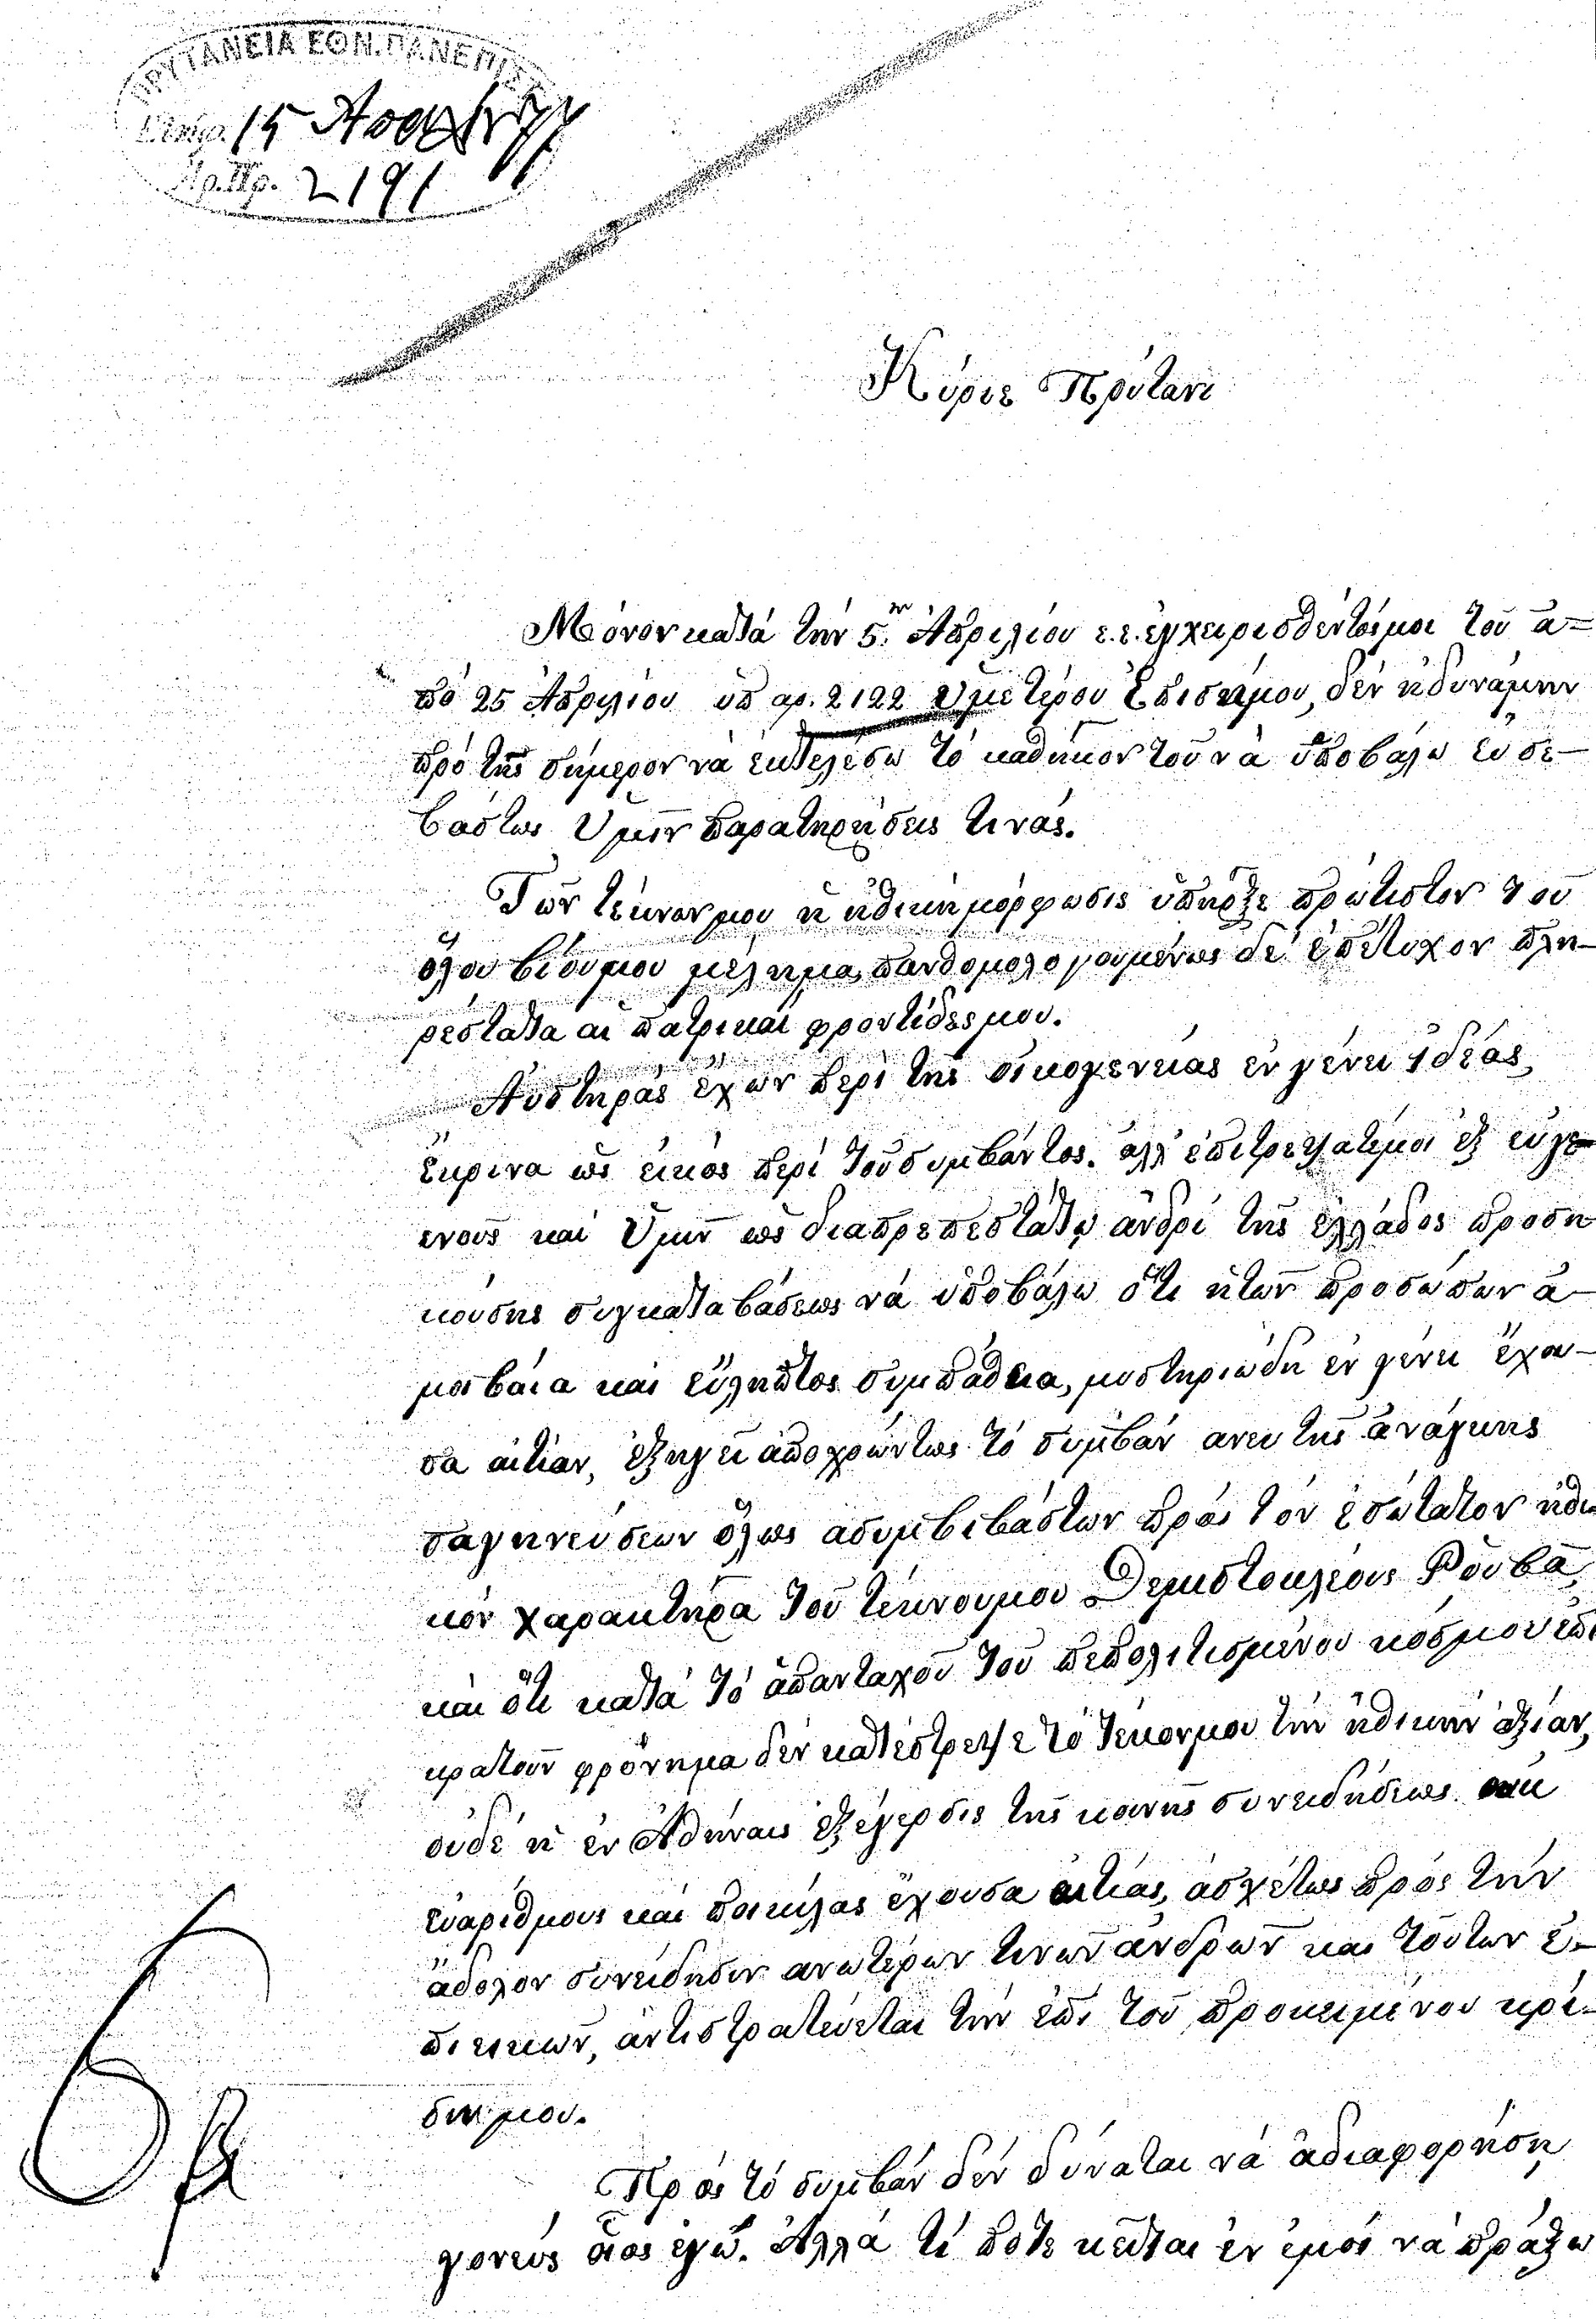 ΠΡΥΤΑΝΕΙΑ ΕΘΝ. ΠΑΝΕΠΙΣ
15
Ἀρ. Πρ. 2191
Κύριε Πρύτανι
Μόνον κατά τήν 5.ην Ἀπριλίου ε.ε. ἐγχειρισθέντος μοι τοῦ ἀ=
πό 25 Ἀπριλίου ὑπ αρ. 2122 Ὑμετέρου Ἐπισήμου, δέν ἠδυνάμην
πρό τῆς σήμερον νά ἐκτελέσω τό καθῆκον τοῦ νά ὑποβάλω εὐσε–
βάστως Ὑμῖν παρατηρήσεις τινάς.
Τῶν τέκνων μου ἡ ἠθική μόρφωσις ὑπῆρξε πρώτιστον τοῦ
ὅλου βίου μου μέλημα, πανθομολογουμένως δέ ἐπέτυχον πλη–
ρέστατα αἱ πατρικαί φροντίδες μου.
Αὐστηράς ἔχων περί τῆς οἰκογενείας ἐν γένει ἰδέας,
ἔκρινα ὡς εἰκός περί τοῦ συμβάντος. ἀλλ' ἐπιτρέψατέ μοι ἐξ εὐγε
ενοῦς καί Ὑμῖν ὡς διαπρεπεστάτῳ ἀνδρί τῆς Ἑλλάδος προση
κούσης συγκαταβάσεως νά ὑποβάλω ὅτι ἡ τῶν προσώπων ἀ–
μοιβαία καί εὔληπτος συμπάθεια, μυστηριώδη ἐν γένει ἔχου–
σα αἰτίαν, ἐξηγεῖ ἀποχρώντως τό συμβάν ανευ τῆς ἀνάγκης
σαγηνεύσεων ὅλως ασυμβιβάστων πρός τόν ἐσώτατον ἠθι
κόν χαρακτῆρα τοῦ τέκνου μου Θεμιστοκλέους Ρούβα,
καί ὅτι κατά τό ἁπανταχοῦ τοῦ πεπολιτισμένου κόσμου ἐπι
κρατοῦν φρόνημα δέν κατέστρεψε τό τέκνον μου τήν ἠθικήν ἀξίαν,
οὐδέ ἡ ἐν Ἀθήναις ἐξέγερσις τῆς κοινῆς συνειδήσεως
εὐαρίθμους καί ποικίλας ἔχουσα αἰτίας, ἀσχέτως πρός τήν
ἄδολον συνείδησιν ανωτέρων τινῶν ἀνδρῶν καί τούτων ἐ–
πιεικῶν, ἀντιστρατεύεται τήν ἐπί τοῦ προκειμένου κρί–
σιν μου.
Πρός τό συμβάν δέν δύναται νά ἀδιαφορήσῃ
γονεύς οἷος ἐγώ. Ἀλλά τί ποτε κεῖται ἐν ἐμοί νά πράξω